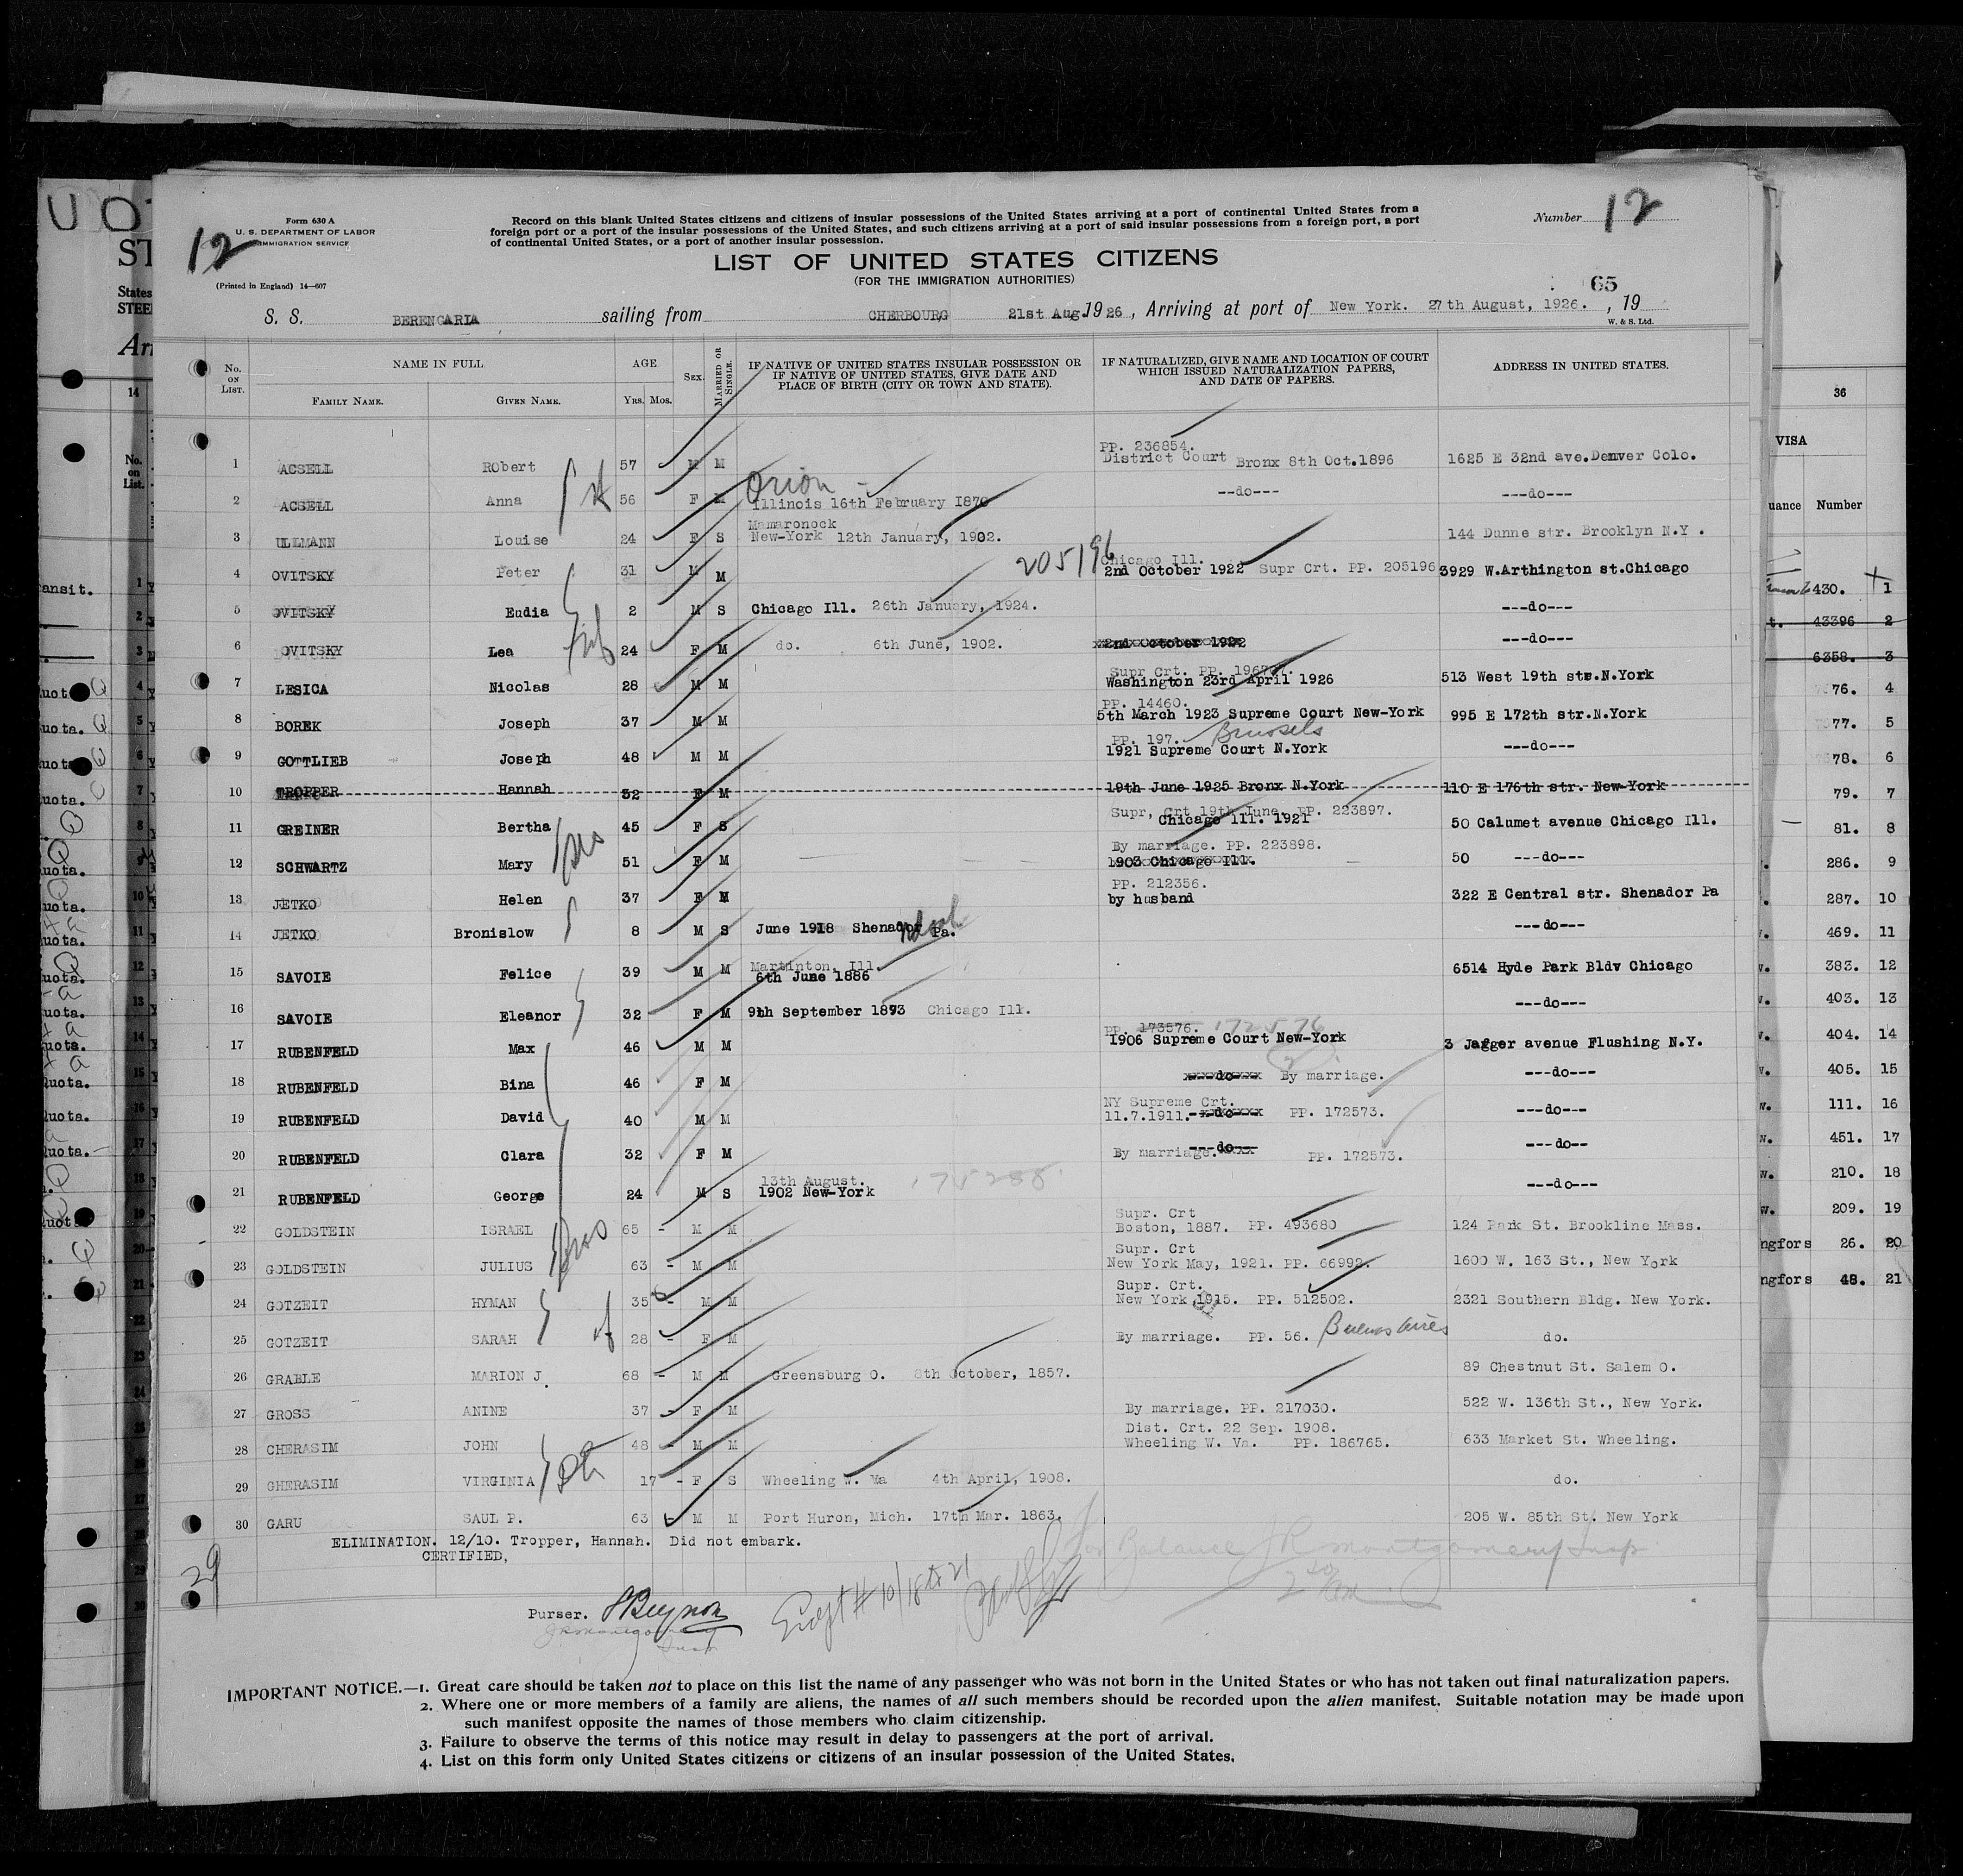 Form 630 A
U. S. DEPARTMENT OF LABOR
IMMIGRATION SERVICE
(Printed in England) 14—607
12
Record on this blank United States citizens and citizens of insular possessions of the United States arriving at a port of continental United States from a
foreign port or a port of the insular possessions of the United States, and such citizens arriving at a port of said insular possessions from a foreign port, a port
of continental United States, or a port of another insular possession.
Number 12
LIST OF UNITED STATES CITIZENS
(FOR THE IMMIGRATION AUTHORITIES)
65
S. S. BERENGARIA sailing from CHERBOURG 21st Aug. 1926, Arriving at port of New York. 27th August, 1926. , 19
W. & S. Ltd.
No. on List. NAME IN FULL AGE Sex. MARRIED OR SINGLE. IF NATIVE OF UNITED STATES INSULAR POSSESSION OR IF NATIVE OF UNITED STATES, GIVE DATE AND PLACE OF BIRTH (CITY OR TOWN AND STATE). IF NATURALIZED, GIVE NAME AND LOCATION OF COURT WHICH ISSUED NATURALIZATION PAPERS, AND DATE OF PAPERS. ADDRESS IN UNITED STATES.
Family Name. Given Name. Yrs. Mos.
PP. 236854.
1 ACSELL RObert 57 M M District Court Bronx 8th Oct.1896 1625 E 32nd ave.Denver Colo.
Orion
2 ACSELL Anna 56 F M Illinois 16th February 1870 --do--- ---do---
Mamaronock
3 ULLMANN Louise 24 F S New-York 12th January, 1902. 144 Dunne str. Brooklyn N.Y .
205196 Chicago Ill.
4 OVITSKY Peter 31 M M 2nd October 1922 Supr Crt. PP. 205196 3929 W.Arthington st.Chicago
5 OVITSKY Eudia 2 M S Chicago Ill. 26th January, 1924. ---do---
6 OVITSKY Lea 24 F M do. 6th June, 1902. 2nd October 1922 ---do---
Supr Crt. PP.
7 LESICA Nicolas 28 M M Washington 23rd April 1926 513 West 19th str.N.York
PP. 14460.
8 BOREK Joseph 37 M M 5th March 1923 Supreme Court New-York 995 E 172th str.N.York
PP. 197. Brussels
9 GOTTLIEB Joseph 48 M M 1921 Supreme Court N.York ---do---
10 TROPPER Hannah 32 F M 19th June 1925 Bronx N.York 110 E 176th str. New-York
Supr, Crt 19th June, PP. 223897.
11 GREINER Bertha 45 F S Chicago Ill. 1921 50 Calumet avenue Chicago Ill.
By marriage. PP. 223898.
12 SCHWARTZ Mary 51 F M 1903 Chicago Ill. 50 ---do---
PP. 212356.
13 JETKO Helen 37 F M by husband 322 E Central str. Shenador Pa
14 JETKO Bronislow 8 M S June 1918 Shenador Pa. ---do---
Martinton, Ill
15 SAVOIE Felice 39 M M 6th June 1886 6514 Hyde Park Bldv Chicago
16 SAVOIE Eleanor 32 F M 9th September 1893 Chicago Ill. ---do---
PP. 173576. 172576
17 RUBENFELD Max 46 M M 1906 Supreme Court New-York 3 Jagger avenue Flushing N.Y.
18 RUBENFELD Bina 46 F M do By marriage. ---do---
NY Supreme Crt.
19 RUBENFELD David 40 M M 11.7.1911. do PP. 172573. ---do---
20 RUBENFELD Clara 32 F M By marriage. ---do PP. 172573. ---do--
13th August.
21 RUBENFELD George 24 M S 1902 New-York ---do---
Supr. Crt
22 GOLDSTEIN ISRAEL 65 - M M Boston, 1887. PP. 493680 124 Park St. Brookline Mass.
Supr. Crt
23 GOLDSTEIN JULIUS 63 - M M New York May, 1921. PP. 66992. 1600 W. 163 St., New York
Supr. Crt.
24 GOTZEIT HYMAN 35 - M M New York 1915. PP. 512502. 2321 Southern Bldg. New York.
25 GOTZEIT SARAH 28 - F M By marriage. PP. 56. Buenos Aires do.
26 GRABLE MARION J. 68 - M M Greensburg O. 8th October, 1857. 89 Chestnut St. Salem O.
27 GROSS ANINE 37 - F M By marriage. PP. 217030. 522 W. 136th St., New York.
Dist. Crt. 22 Sep. 1908.
28 GHERASIM JOHN 48 - M M Wheeling W. Va. PP. 186765. 633 Market St. Wheeling.
29 GHERASIM VIRGINIA 17 - F S Wheeling W. Ma 4th April, 1908. do.
30 GARU SAUL P. 63 - M M Port Huron, Mich. 17th Mar. 1863. 205 W. 85th St. New York
ELIMINATION. 12/10. Tropper, Hannah. Did not embark.
CERTIFIED,
29
Purser.
IMPORTANT NOTICE.—1. Great care should be taken not to place on this list the name of any passenger who was not born in the United States or who has not taken out final naturalization papers.
2. Where one or more members of a family are aliens, the names of all such members should be recorded upon the alien manifest. Suitable notation may be made upon
such manifest opposite the names of those members who claim citizenship.
3. Failure to observe the terms of this notice may result in delay to passengers at the port of arrival.
4. List on this form only United States citizens or citizens of an insular possession of the United States.
36
VISA
uance Number
430. 1
43396 2
6358. 3
76. 4
77. 5
78. 6
79. 7
81. 8
286. 9
287. 10
469. 11
383. 12
403. 13
404. 14
405. 15
111. 16
451. 17
210. 18
209. 19
ngfors 26. 20
ngfors 48. 21